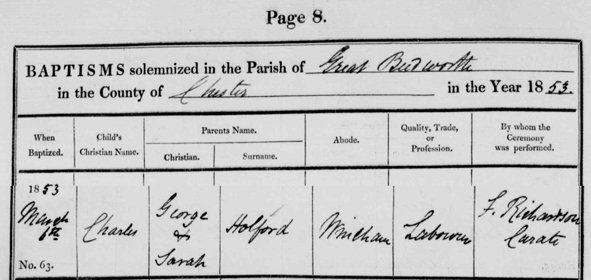 Page 8.
BAPTISMS solemnized in the Parish of Great Budworth
in the County of Chester in the Year 1853.
When Baptized. Child's Christian Name. Parents Name. Christian. Surname. Abode. Quality, Trade, or Profession. By whom the Ceremony was performed.
1853
March 6th Charles George & Sarah Holford Wincham Labourer F. Richardson Curate
No. 63.